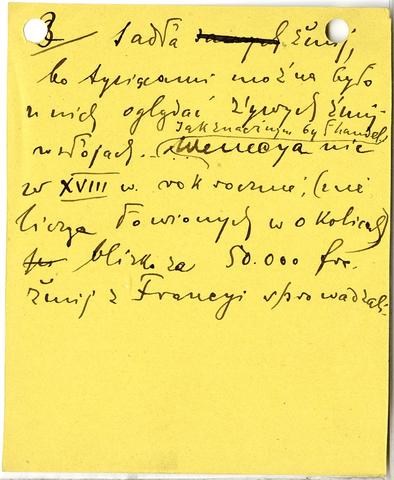 3 sadła żmij,
bo tysiącami można było
u nich oglądać żywych żmij
Jak znacznym był handel
w słojach. Wenecyanie
w XVIII w. rokrocznie, (nie
licząc łowionych w okolicach)
blizko za 50.000 frc.
żmij z Francyi sprowadzali.